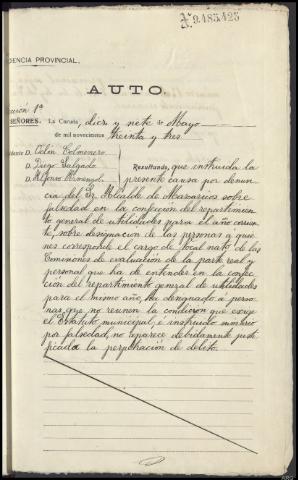 Nº 9.485.425
DENCIA PROVINCIAL.
AUTO
Sección 1ª
SEÑORES.
La Coruña, diez y siete de Mayo
de mil novecientos treinta y tres
idente D. Félix Colmenero
Diego Salgado
D. Alfonso
Resultando, que instruída la
presente causa por denun-
cia del Sr. Alcalde de Mazaricos sobre
falsedad en la confección del repartimien-
to general de utilidades para el año corrien-
te, sobre designación de las personas á quie-
nes corresponde el cargo de vocal nato de las
Comisiones de evaluación de la parte real y
personal que ha de entender en la confec-
ción del repartimiento general de utilidades
para el mismo año, ha designado á perso-
nas que no reunen la condición que exige
el Estatuto municipal, é instruído sumario
por falsedad, no aparece debidamente justi-
ficada la perpetración de delito.
ARG